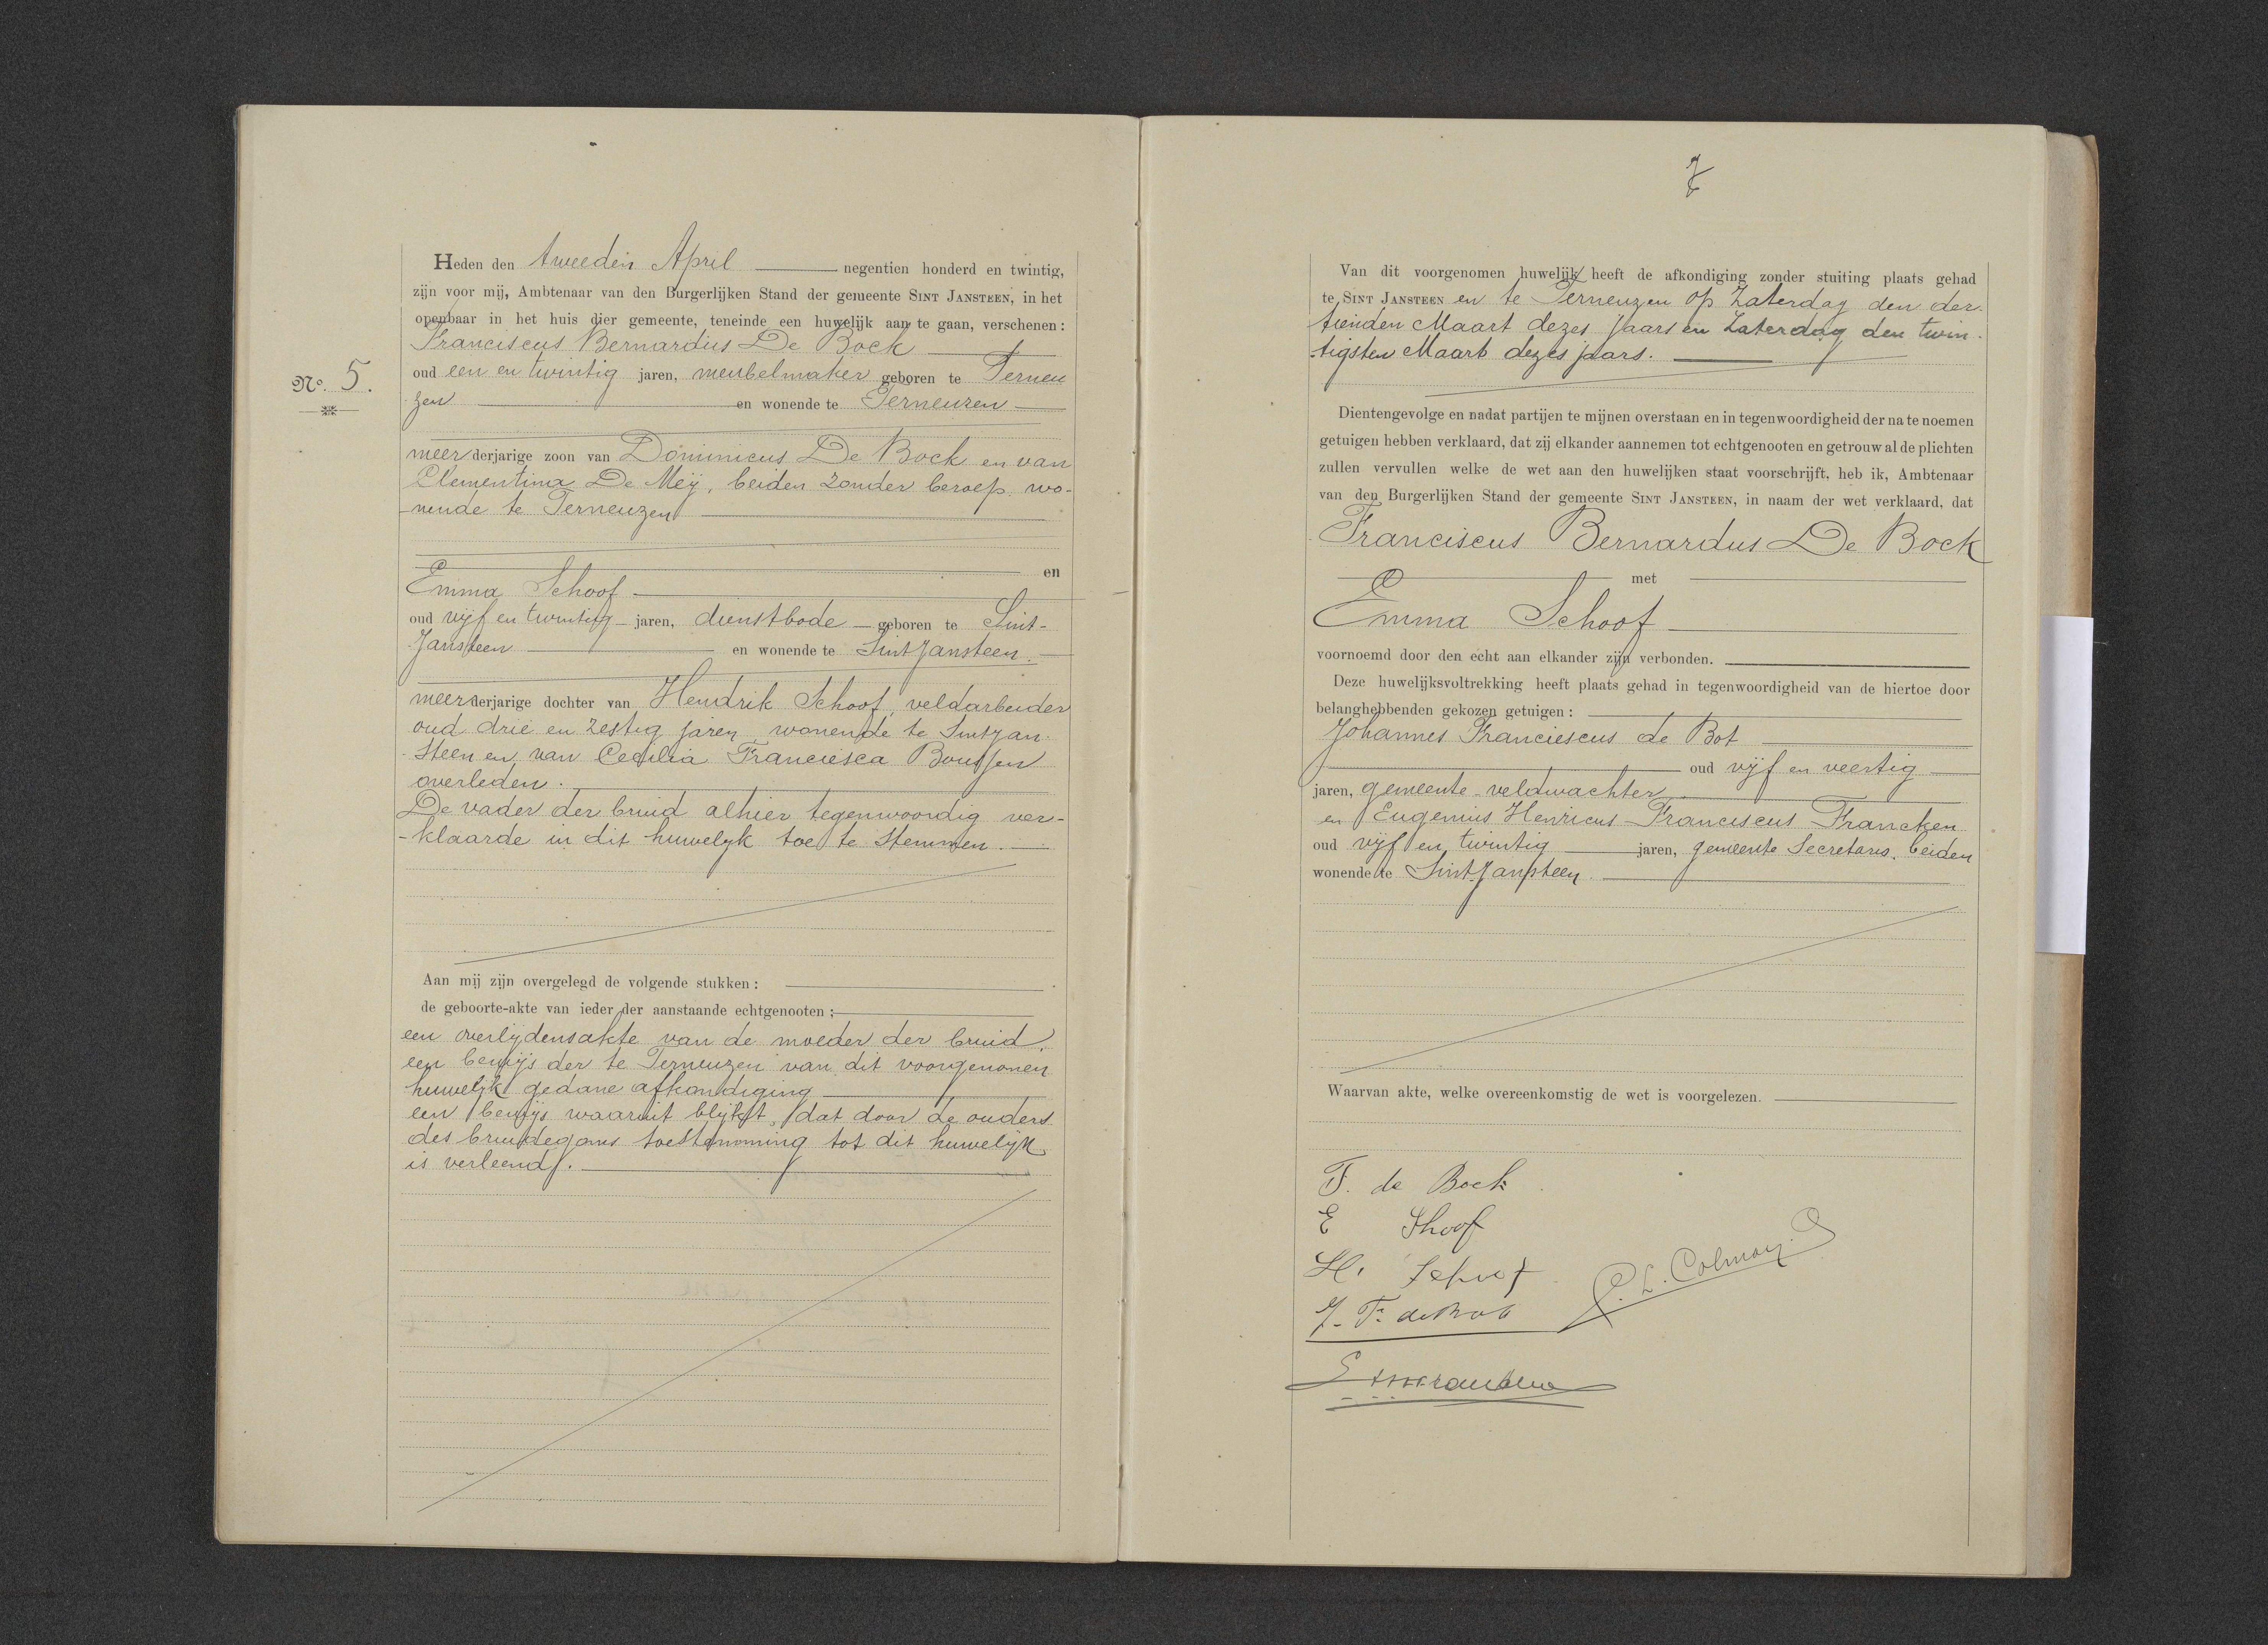 Heden den tweeden April negentien honderd en twintig,
zijn voor mij, Ambtenaar van den Burgerlijken Stand der gemeente SINT JANSTEEN, in het
openbaar in het huis dier gemeente, teneinde een huwelijk aan te gaan, verschenen:
Franciscus Bernardus De Bock
No. 5.
oud een en twintig jaren, meubelmaker geboren te Terneu
zen en wonende te Terneuzen
meerderjarige zoon van Dominicus De Bock en van
Clementina De Meij, beiden zonder beroep wo-
nende te Terneuzen
en
Emma Schoof
oud vijf en twintig jaren, dienstbode geboren te Sint-
Jansteen en wonende te Sint Jansteen.
meerderjarige dochter van Hendrik Schoof, veldarbeider
oud drie en zestig jaren, wonende te Sintjan-
steen en van Cecilia Franciesca
overleden.
De vader der bruid alhier tegenwoordig ver-
-klaarde in dit huwelyk toe te stemmen.
Aan mij zijn overgelegd de volgende stukken:
de geboorte-akte van ieder der aanstaande echtgenooten;
een overlijdensakte van de moeder der bruid.
een bewijs der te Terneuzen van dit voorgenomen
huwelijk gedane afkondiging
een bewijs waaruit blijkt, dat door de ouders
des bruidegoms toestemming tot dit huwelijk
is verleend.
7
Van dit voorgenomen huwelijk heeft de afkondiging zonder stuiting plaats gehad
te SINT JANSTEEN en te Terneuzen op Zaterdag den der-
tienden Maart dezes jaars en Zaterdag den twin-
-tigsten Maart dezes jaars.
Dientengevolge en nadat partijen te mijnen overstaan en in tegenwoordigheid der na te noemen
getuigen hebben verklaard, dat zij elkander aannemen tot echtgenooten en getrouw al de plichten
zullen vervullen welke de wet aan den huwelijken staat voorschrijft, heb ik, Ambtenaar
van den Burgerlijken Stand der gemeente SINT JANSTEEN, in naam der wet verklaard, dat
Franciscus Bernardus De Bock
met
Emma Schoof
voornoemd door den echt aan elkander zijn verbonden.
Deze huwelijksvoltrekking heeft plaats gehad in tegenwoordigheid van de hiertoe door
belanghebbenden gekozen getuigen:
Johannes Franciescus de Bot
oud vijf en veertig
jaren, gemeente-veldwachter
en Eugenius Henricus Franciscus Francken
oud vijf en twintig jaren, gemeente Secretaris, beiden
wonende te Sint Jansteen.
Waarvan akte, welke overeenkomstig de wet is voorgelezen.
F. de Bock
E Shoof
H. Schoof
J. F. de Bot